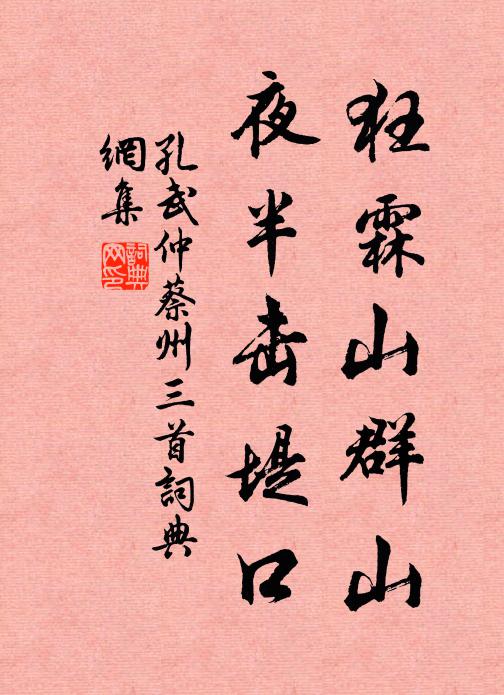 狂霖山群山
夜半击堤口
孔武仲蔡州三首詞典
網集
詞典
网印